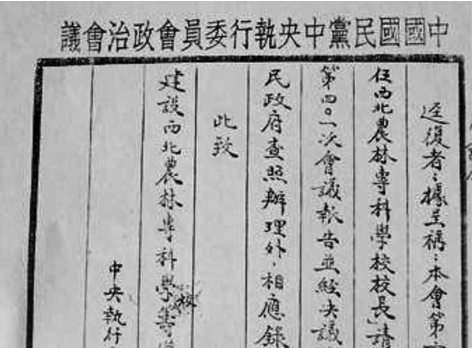 中國國民黨中央執行委員會政治會議
逕復者：據呈稱：本會第
任西北農林專科學校校長」請
第四〇一次會議報告並經決議
民政府查照辦理外，相應錄
此致
建設西北農林專科學校籌
中央執行